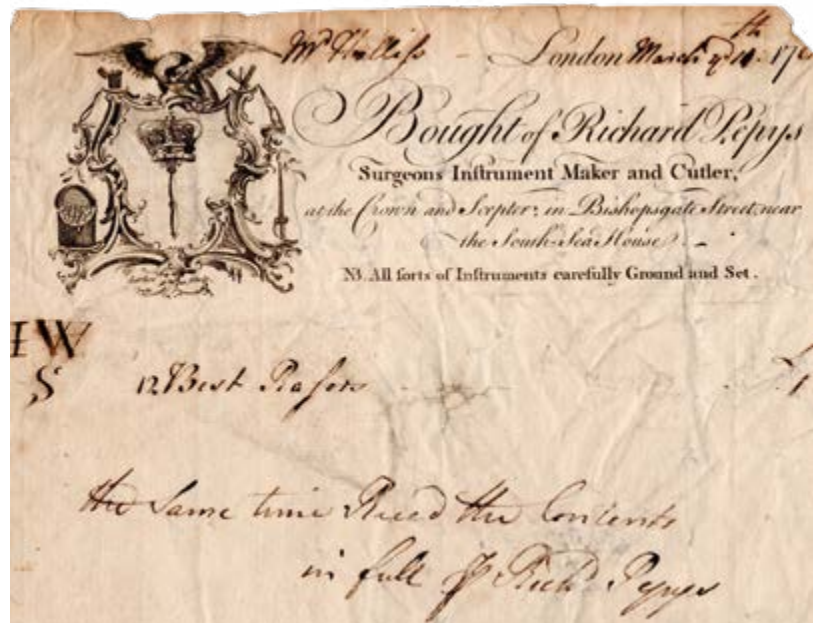 London March
Bought of Richard Pepys
Surgeons Inſtrument Maker and Cutler,
at the Crown and Scepter, in Bishopsgate Street, near
the South-Sea House.
NB. All ſorts of Inſtruments carefully Ground and Set.
IW
S 12 Best Raſors
the Same time Recd the Contents
in full Richd Pepys